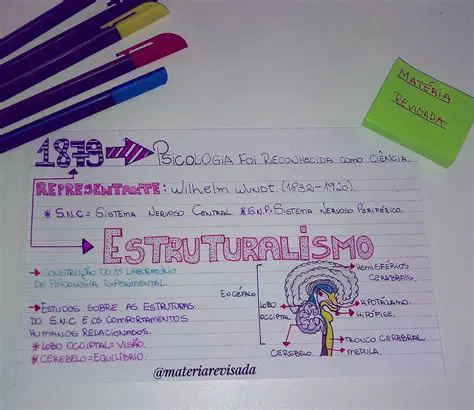 MATÉRIA
REVISADA
1879 PSICOLOGIA FOI RECONHECIDA COMO CIÊNCIA.
REPRESENTANTE: WILHELM WUNDT. (1832-1920).
* S.N.C = SISTEMA NERVOSO CENTRAL * S.N.P: SISTEMA NERVOSO PERIFÉRICO.
ESTRUTURALISMO
CONSTRUÇÃO DO 1º LABORATÓRIO
DE PSICOLOGIA EXPERIMENTAL.
ESTUDOS SOBRE AS ESTRUTURAS
DO S.N.C E OS COMPORTAMENTOS
HUMANOS RELACIONADOS.
* LOBO OCCIPTAL = VISÃO.
* CEREBELO = EQUILÍBRIO.
HEMISFÉRIOS
CEREBRAIS.
ENCÉFALO
LOBO
OCCIPTAL
HIPOTÁLAMO.
HIPÓFISE.
TRONCO CEREBRAL
CEREBELO.
MEDULA.
@materiarevisada